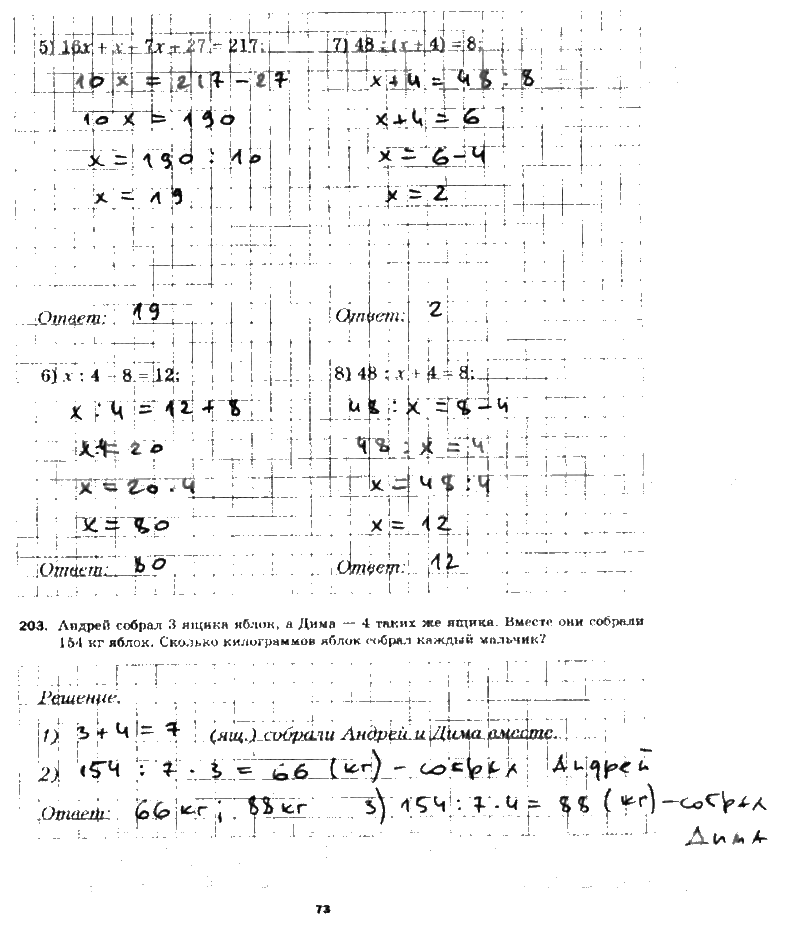 5) 16x + x − 7x + 27 = 217;
10x = 217 − 27
10x = 190
x = 190 : 10
x = 19
Ответ: 19
7) 48 : (x + 4) = 8;
x+4 = 48 : 8
x+4 = 6
x = 6−4
x = 2
Ответ: 2
6) x : 4 − 8 = 12;
x : 4 = 12 + 8
x:4= 20
x = 20 · 4
x = 80
Ответ: 80
8) 48 : x + 4 = 8;
48 : x = 8−4
48 : x = 4
x = 48 : 4
x = 12
Ответ: 12
203. Андрей собрал 3 ящика яблок, а Дима — 4 таких же ящика. Вместе они собрали
154 кг яблок. Сколько килограммов яблок собрал каждый мальчик?
Решение.
1) 3+4 = 7 (ящ.) собрали Андрей и Дима вместе.
2) 154 : 7 · 3 = 66 (кг) − собрал Андрей
Ответ: 66 кг; 88 кг 3) 154 : 7 · 4 = 88 (кг) − собрал
Дима
73